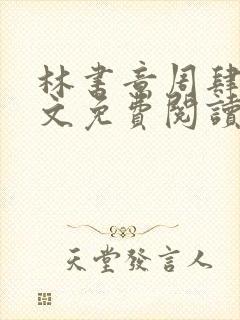 林書音周肆
文免費閱讀
天堂發言人